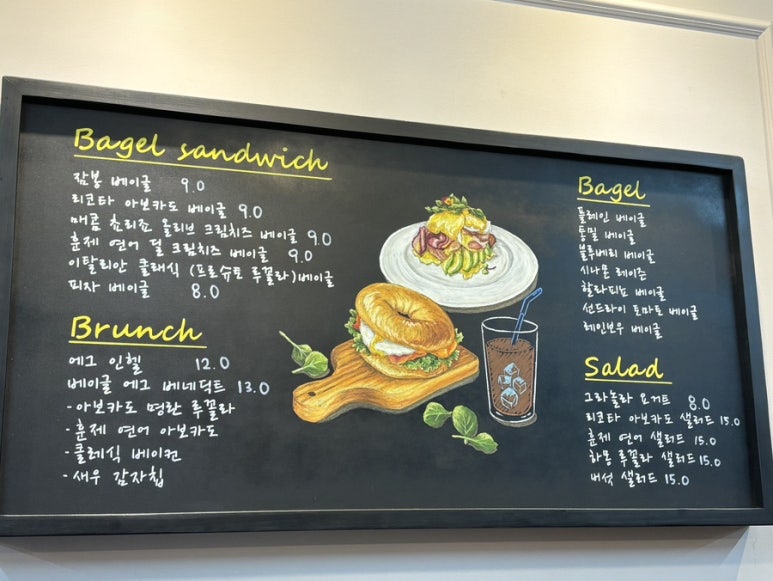 Bagel sandwich
잠봉 베이글 9.0
리코타 아보카도 베이글 9.0
매콤 쵸리죠 올리브 크림치즈 베이글 9.0
훈제 연어 딜 크림치즈 베이글 9.0
이탈리안 클래식 (프로슈토 루꼴라)베이글
피자 베이글 8.0
Brunch
에그 인헬 12.0
베이글 에그 베네딕트 13.0
-아보카도 명란 루꼴라
-훈제 연어 아보카도
-클래식 베이컨
-새우 감자칩
Bagel
플레인 베이글
통밀 베이글
블루베리 베이글
시나몬 레이즌
할라피뇨 베이글
선드라이 토마토 베이글
레인보우 베이글
Salad
그라놀라 요거트 8.0
리코타 아보카도 샐러드 15.0
훈제 연어 샐러드 15.0
하몽 루꼴라 샐러드 15.0
버섯 샐러드 15.0